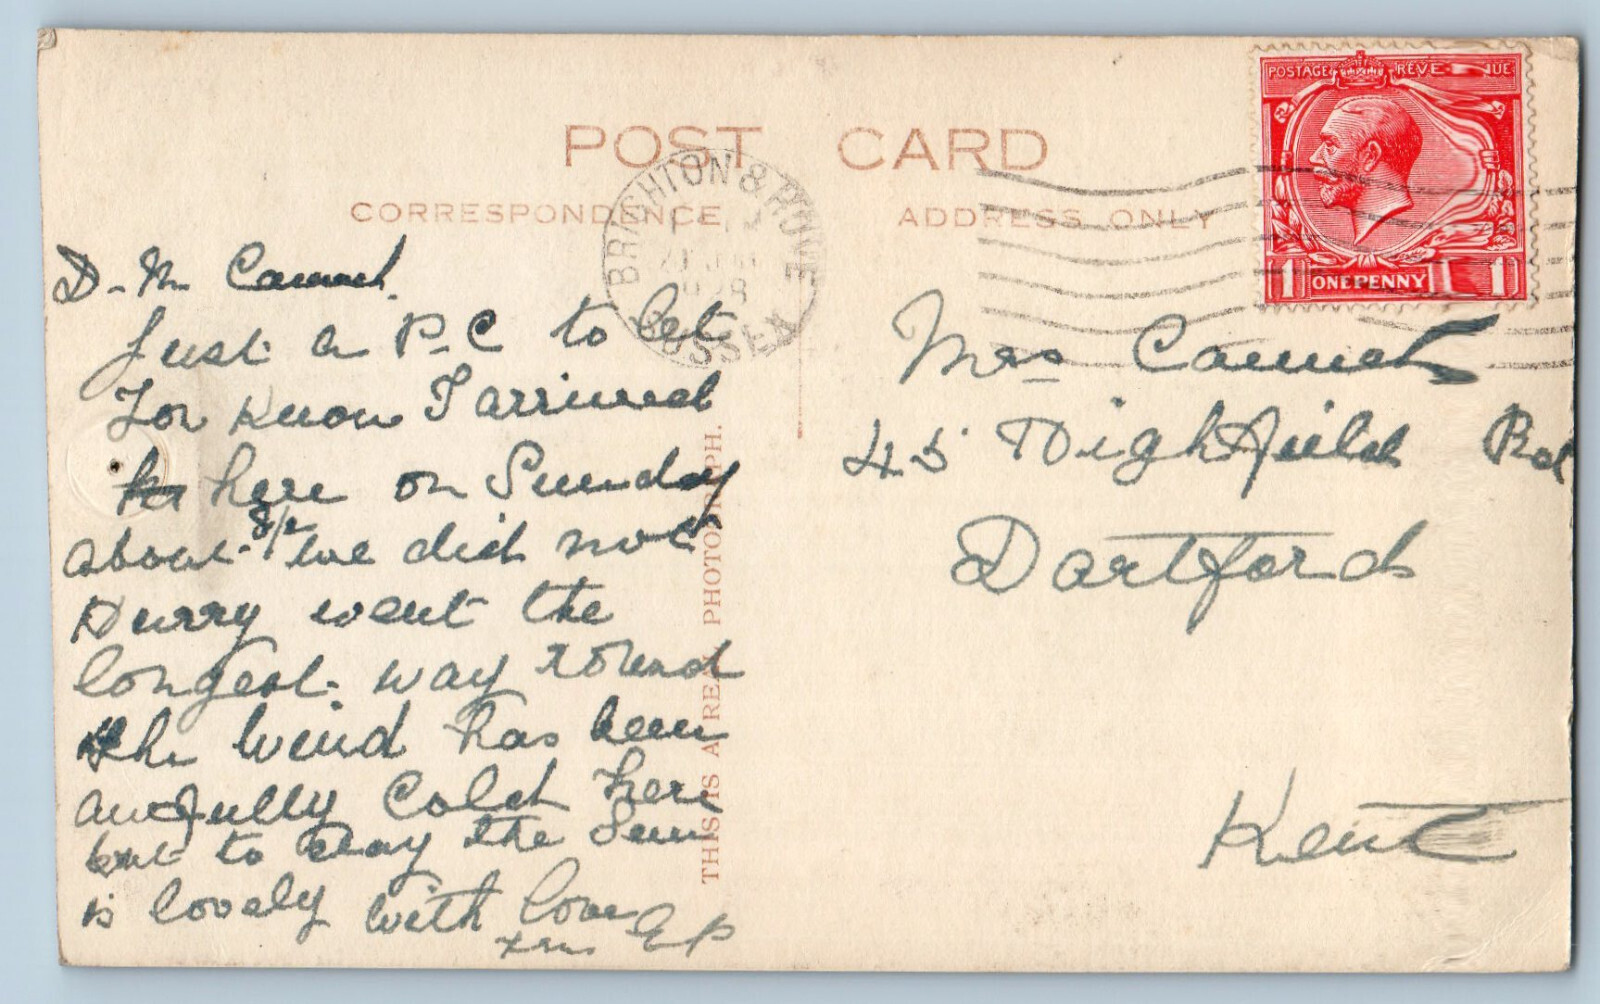 POST CARD
CORRESPONDENCE
ADDRESS ONLY
BRIGHTON & HOVE
SUSSEX
POSTAGE REVENUE
1 ONE PENNY 1
D - M
Just a P-C to let
You know I arrived
here on Sunday
about 8/2 we did not
Hurry went the
longest way round
the wind has been
awfully Cold here
but to day the Sun
is lovely with love
from EP
THIS IS A REAL PHOTOGRAPH.
Mrs
45 Highfield Rd
Dartford
Kent